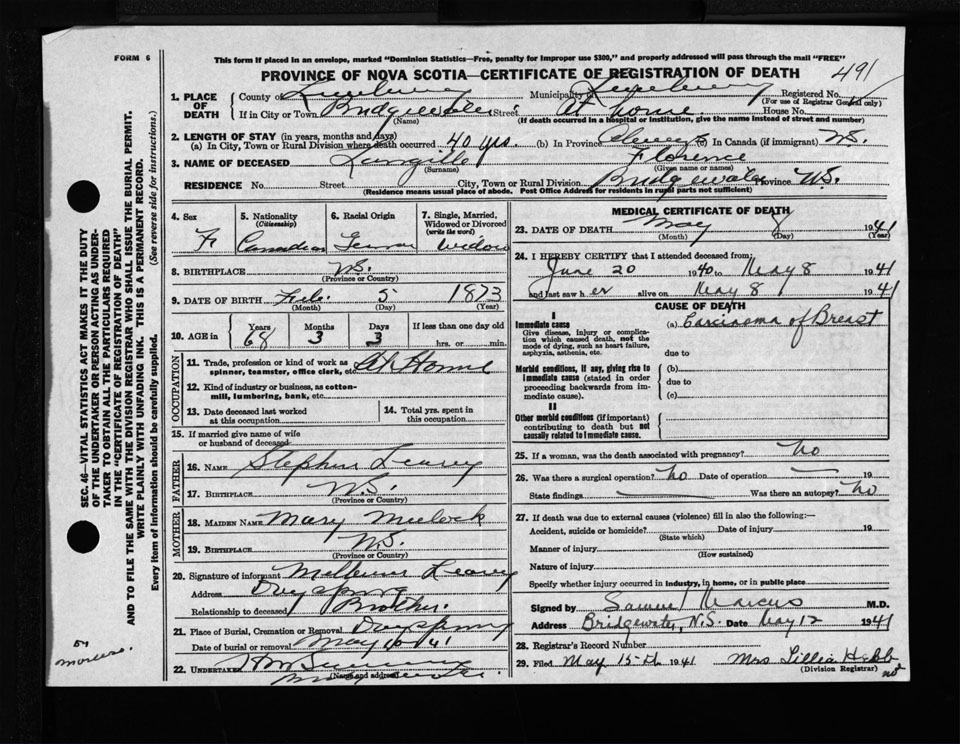 FORM 6
This form if placed in an envelope, marked "Dominion Statistics—Free, penalty for improper use $300," and properly addressed will pass through the mail "FREE"
PROVINCE OF NOVA SCOTIA—CERTIFICATE OF REGISTRATION OF DEATH
491
1. PLACE OF DEATH
County of Lunenburg Municipality of Lunenburg Registered No.
(For use of Registrar General only)
If in City or Town Bridgewater Street At home House No.
(Name) (If death occurred in a hospital or institution, give the name instead of street and number)
2. LENGTH OF STAY (in years, months and days)
(a) In City, Town or Rural Division where death occurred 40 yrs. (b) In Province Always (c) In Canada (if immigrant) N.S.
3. NAME OF DECEASED Langille Florence
(Surname) (Given name or names)
RESIDENCE No. Street City, Town or Rural Division Bridgewater Province N.S.
(Residence means usual place of abode. Post Office Address for residents in rural parts not sufficient)
4. Sex F
5. Nationality (Citizenship) Canadian
6. Racial Origin German
7. Single, Married, Widowed or Divorced (write the word) Widow
8. BIRTHPLACE N.S.
(Province or Country)
9. DATE OF BIRTH Feb. 5 1873
(Month) (Day) (Year)
10. AGE in Years 68 Months 3 Days 3 If less than one day old hrs. or min.
OCCUPATION
11. Trade, profession or kind of work as spinner, teamster, office clerk, etc. At Home
12. Kind of industry or business, as cotton-mill, lumbering, bank, etc.
13. Date deceased last worked at this occupation
14. Total yrs. spent in this occupation
15. If married give name of wife or husband of deceased
FATHER
16. NAME Stephen Leary
17. BIRTHPLACE N.S.
(Province or Country)
MOTHER
18. MAIDEN NAME Mary
19. BIRTHPLACE N.S.
(Province or Country)
20. Signature of informant Leary
Address
Relationship to deceased Brother.
21. Place of Burial, Cremation or Removal
Date of burial or removal May 10
22. UNDERTAKER
(Name and address)
MEDICAL CERTIFICATE OF DEATH
23. DATE OF DEATH May 8 1941
(Month) (Day) (Year)
24. I HEREBY CERTIFY that I attended deceased from:
June 20 1940 to May 8 1941
and last saw her alive on May 8 1941
CAUSE OF DEATH
I
Immediate cause (a) Carcinoma of Breast
Give disease, injury or complication which caused death, not the mode of dying, such as heart failure, asphyxia, asthenia, etc.
due to
Morbid conditions, if any, giving rise to immediate cause (stated in order proceeding backwards from immediate cause).
(b)
due to
(c)
II
Other morbid conditions (if important) contributing to death but not causally related to immediate cause.
25. If a woman, was the death associated with pregnancy? No
26. Was there a surgical operation? No Date of operation 19
State findings Was there an autopsy? No
27. If death was due to external causes (violence) fill in also the following:—
Accident, suicide or homicide? Date of injury 19
(State which)
Manner of injury
(How sustained)
Nature of injury
Specify whether injury occurred in industry, in home, or in public place
Signed by Samuel Marcus M.D.
Address Bridgewater, N.S. Date May 12 1941
28. Registrar's Record Number
29. Filed May 15th 1941 Mrs Lillian
(Division Registrar)
SEC. 46—VITAL STATISTICS ACT MAKES IT THE DUTY
OF THE UNDERTAKER OR PERSON ACTING AS UNDER-
TAKER TO OBTAIN ALL THE PARTICULARS REQUIRED
IN THE "CERTIFICATE OF REGISTRATION OF DEATH"
AND TO FILE THE SAME WITH THE DIVISION REGISTRAR WHO SHALL ISSUE THE BURIAL PERMIT.
WRITE PLAINLY WITH UNFADING INK. THIS IS A PERMANENT RECORD.
Every item of information should be carefully supplied. (See reverse side for instructions.)